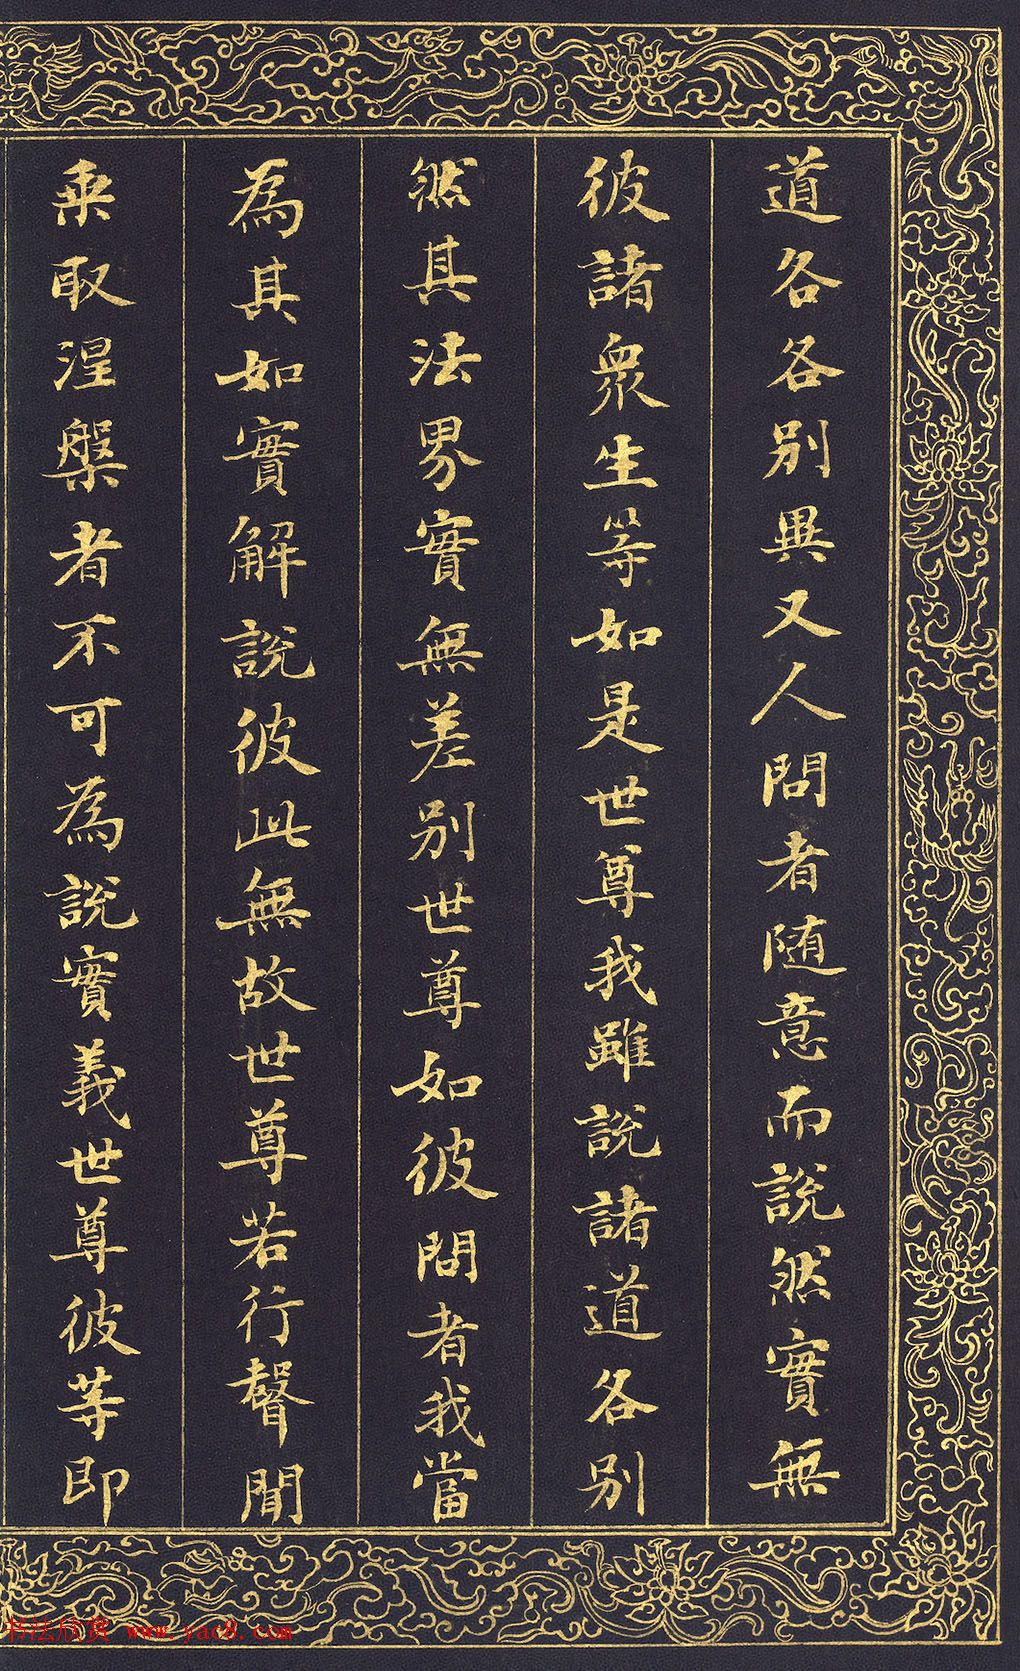 道各各別異又人問者随意而說然實無
彼諸衆生等如是世尊我雖說諸道各別
然其法界實無差別世尊如彼問者我當
為其如實解說彼此無故世尊若行聲聞
乘取涅槃者不可為說實義世尊彼等即
书法欣赏 www.yac8.com